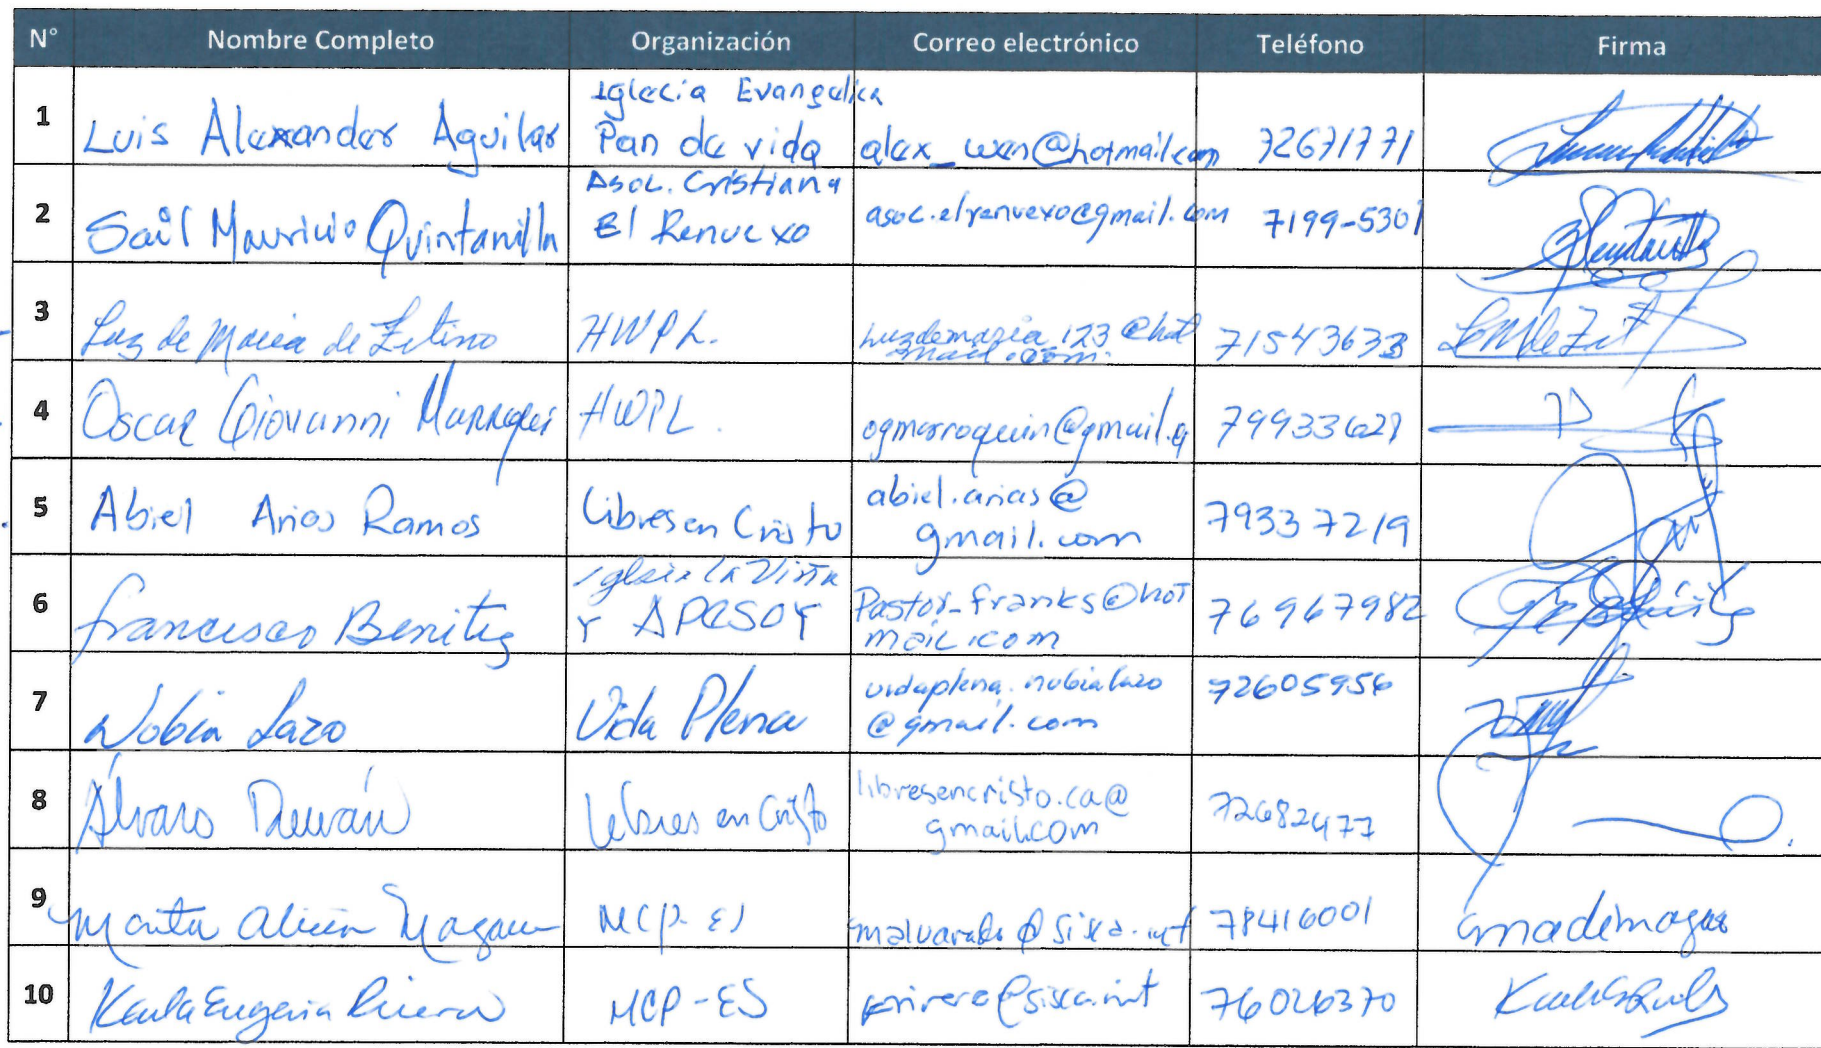 N° Nombre Completo Organización Correo electrónico Teléfono Firma
1 Luis Alexander Aguilar Iglecia Evangelica Pan de vida alex_wen@hotmail.com 72671771
2 Saúl Mauricio Quintanilla Asoc. Cristiana El Renuexo asoc.elrenuexo@gmail.com 7199-5301
3 Luz de Maria de Zetino HWPL. luzdemaria_123@hotmail.com. 71543633
4 Oscar Giovanni HWPL. ogmarroquin@gmail. 79933621
5 Abiel Arias Ramos Libres en Cristo abiel.arias@gmail.com 79337219
6 Francisco Benitez Iglesia la Viña Y APESOY Pastor_franks@hotmail.com 76967982
7 Nobia Lazo Vida Plena vidaplena.nobialazo@gmail.com 72605956
8 Álvaro Durán Libres en Cristo libresencristo.ca@gmail.com 72682477
9 Marta Alicia Magaña MCP-ES malvarado@sisca.int 78416001
10 Karla Eugenia Rivera MCP-ES krivera@sisca.int 76026370